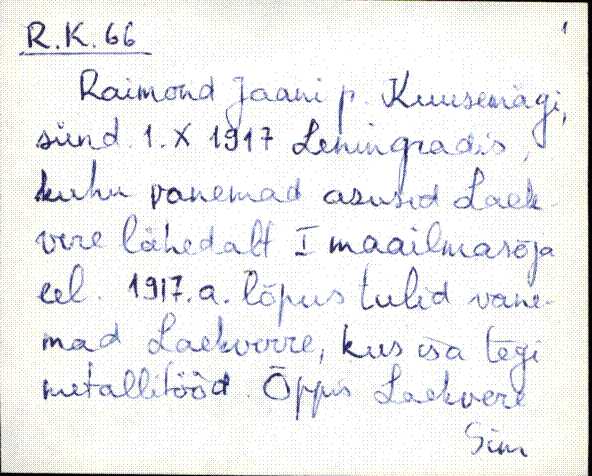 R.K. 66 1
Raimond Jaani p. Kuusemägi,
sünd. 1. X 1917 Leningradis,
kuhu vanemad asusid Laek-
vere lähedalt I maailmasõja
eel. 1917. a. lõpus tulid vane-
mad Laekverre, kus isa tegi
metallitööd. Õppis Laekvere
Sim